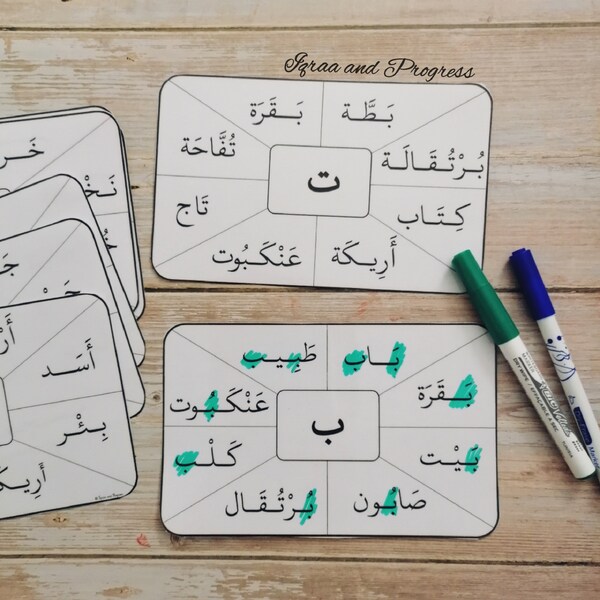 Iqraa and Progress
بَطَّة
بَقَرَة
بُرْتُقَالَة
تُفَّاحَة
ت
كِتَاب
تَاج
أَرِيكَة
عَنْكَبُوت
بَاب
طَبِيب
بَقَرَة
عَنْكَبُوت
ب
بَيْت
كَلْب
صَابُون
بُرْتُقَال
أَسَد
بِئْر